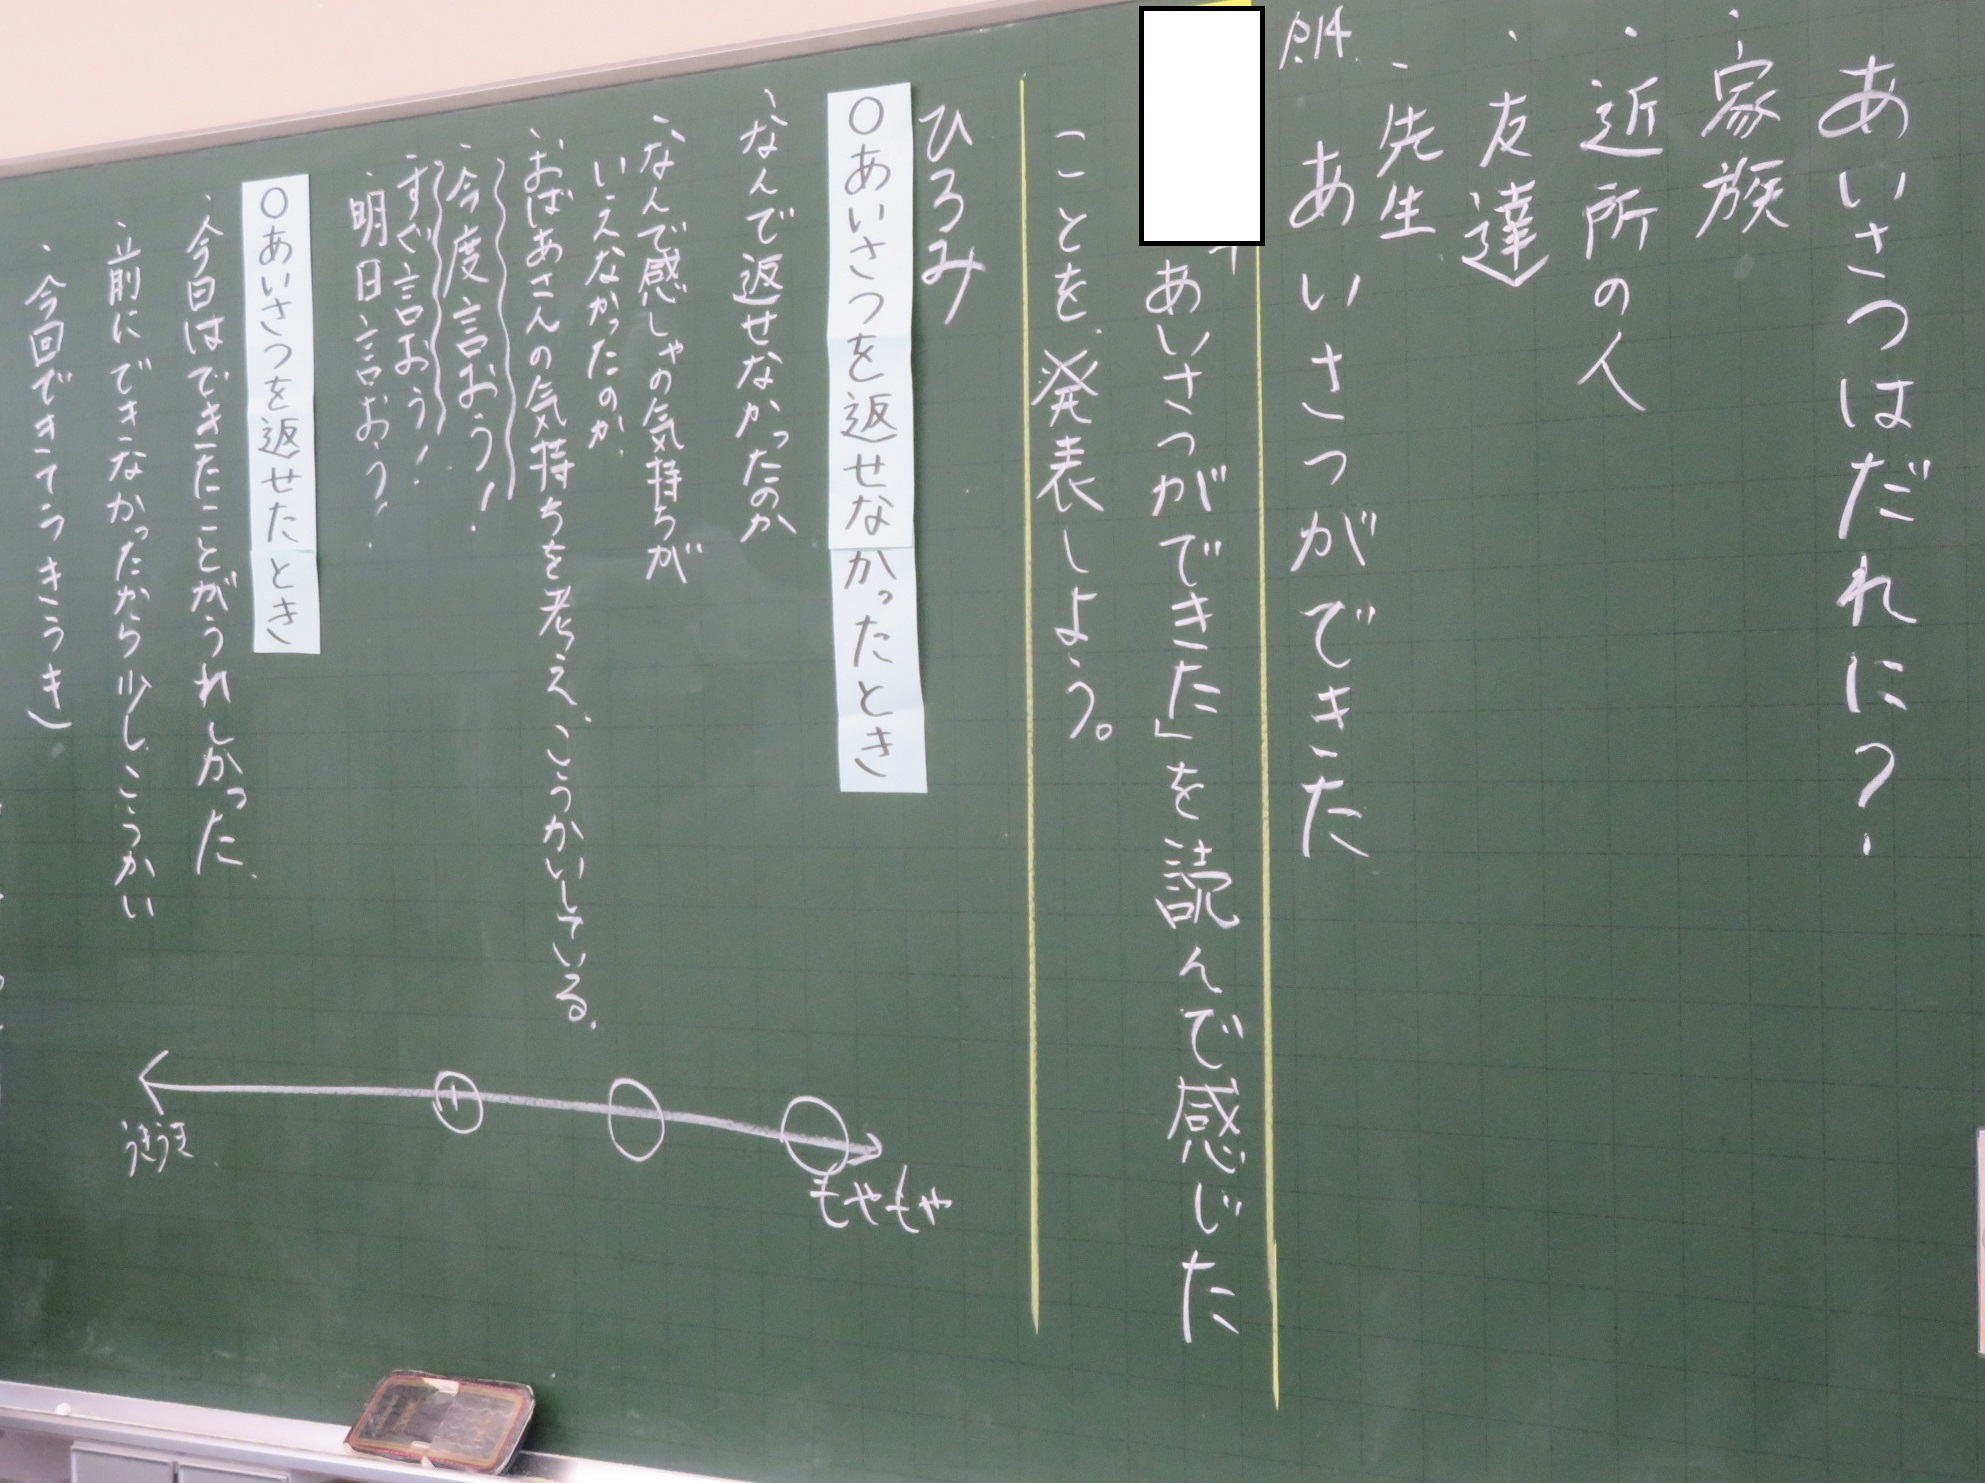 あいさつはだれに?
・家族
・近所の人
・友達
・先生
P.14
あいさつができた
あいさつができた」を読んで感じた
ことを、発表しよう。
ひろみ
○あいさつを返せなかったとき
・なんで返せなかったのか
・なんで感しゃの気持ちが
いえなかったのか、
・おばあさんの気持ちを考え、こうかいしている。
・今度言おう!
すぐ言おう!
・明日言おう!
○あいさつを返せたとき
・今日はできたことがうれしかった。
・前にできなかったから少しこうかい
・今回できてうきうき)
もやもや
うきうき